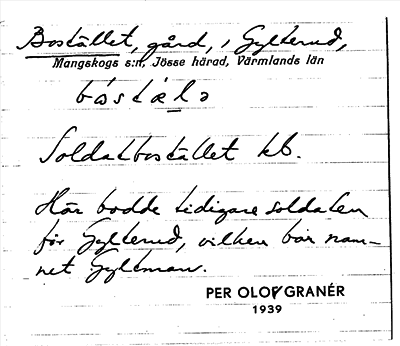 Bostället, gård, i Gylterud,
Mangskogs s:n, Jösse härad, Värmlands län
Soldatbostället kb.
Här bodde tidigare soldaten
för Gylterud, vilken bar nam-
net Gyltman.
PER OLOF GRANÉR
1939